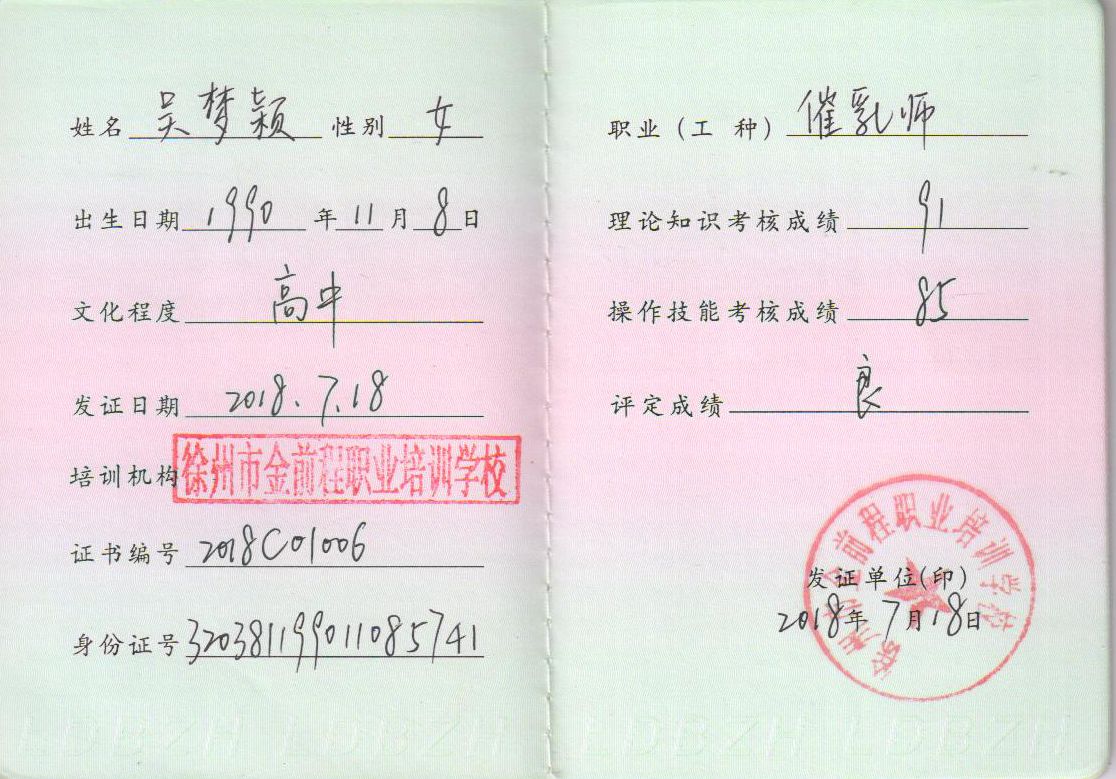 姓名 吴梦颖 性别 女
出生日期 1990 年 11 月 8 日
文化程度 高中
发证日期 2018.7.18
培训机构 徐州市金前程职业培训学校
证书编号 2018C01006
身份证号 320381199011085741
职业（工 种） 催乳师
理论知识考核成绩 91
操作技能考核成绩 85
评定成绩 良
徐州市金前程职业培训学校
发证单位(印)
2018年 7月18日
LDBZH LDBZH LDBZH LDBZH